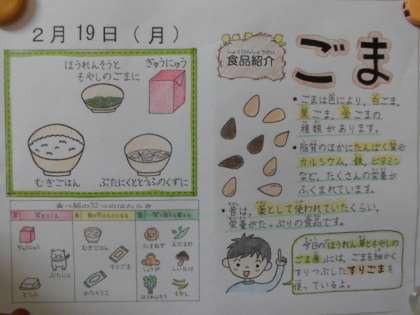 2月19日（月）
ほうれんそうと
もやしのごまに
ぎゅうにゅう
むぎごはん
ぶたにくととうふのくずに
しょくひんしょうかい
食品紹介
ごま
・ごまは色により、白ごま、
黒ごま、金ごまの
種類があります。
・脂質のほかにたんぱく質や
カルシウム、鉄、ビタミン
など、たくさんの栄養が
ふくまれています。
・昔は、薬として使われていたくらい、
栄養がたっぷりの食品です。
今日の「ほうれん草ともやしの
ごま煮」には、ごまを細かく
すりつぶしたすりごまを
使っているよ。
ぎゅうにゅう
ぶたにく
とうふ
むぎごはん
さとう
かたくりこ
たまねぎ
えだまめ
しょうが
しいたけ
ほうれんそう
もやし